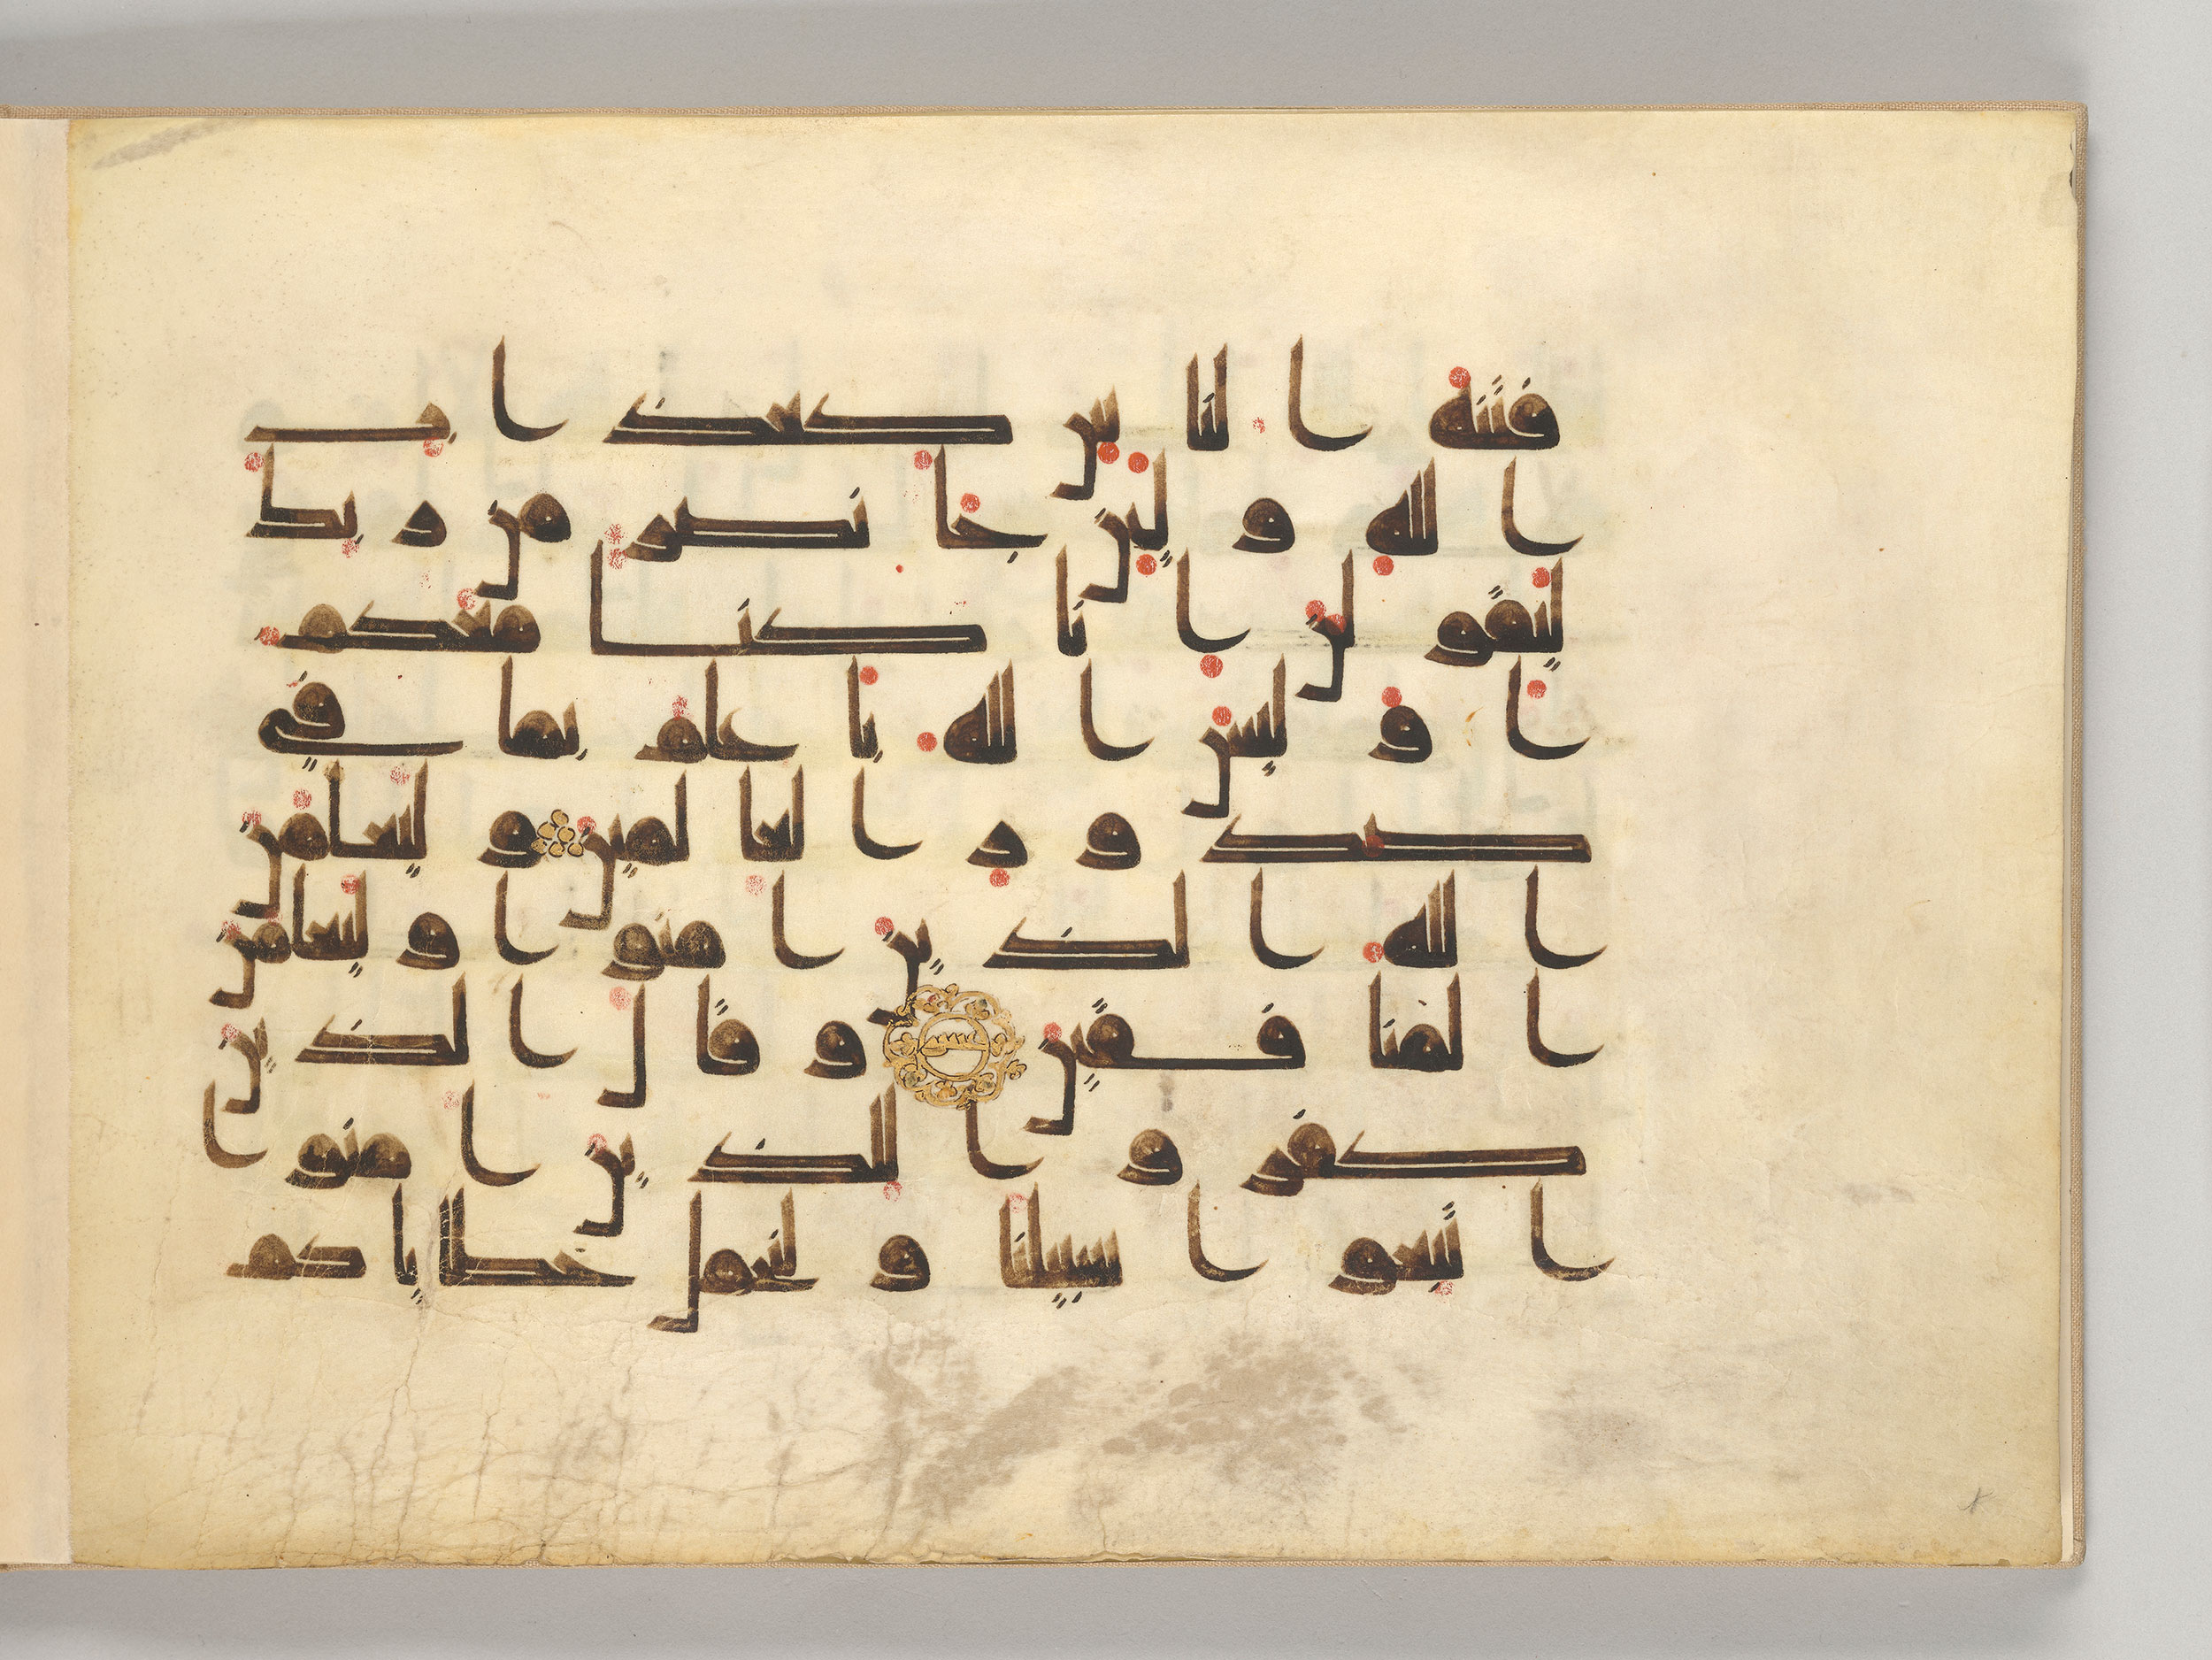 فتنة الناس كعذاب
الله ولئن جا نصر من ربك
ليقولن انا كنا معكم
اوليس الله باعلم بما في
صدور العالمين وليعلمن
الله الذين امنوا وليعلمن
المنافقين وقال الذين
كفروا للذين امنوا
اتبعوا سبيلنا ولنحمل خطاياكم